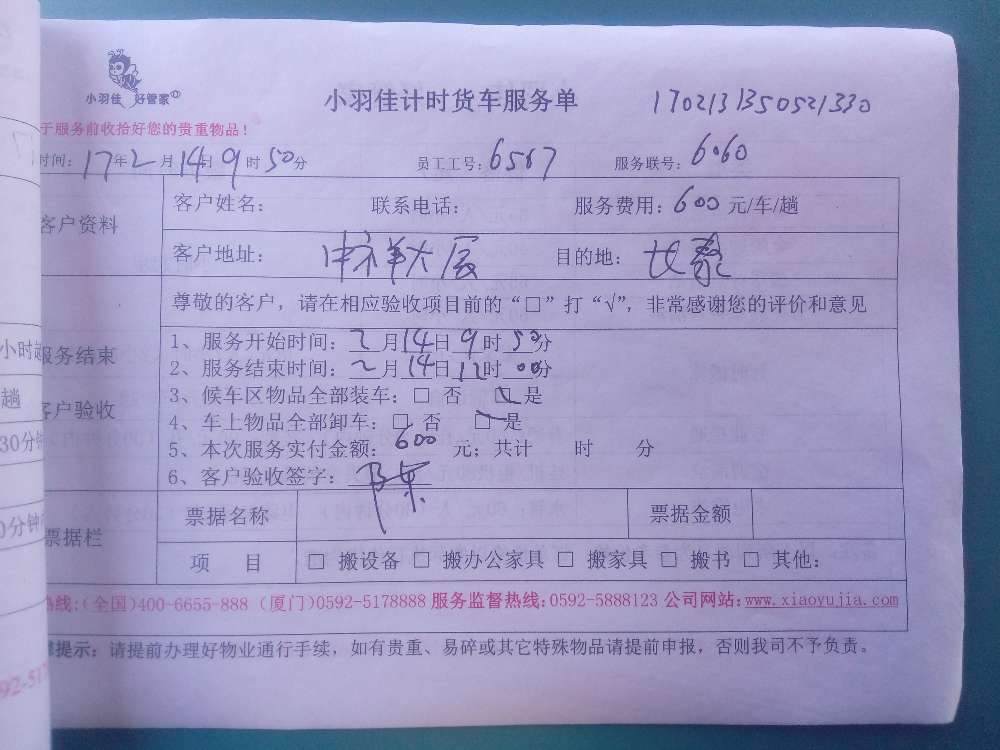 小羽佳 好管家
小羽佳计时货车服务单 1702131350521330
于服务前收拾好您的贵重物品！
时间：17年2月14日9时50分 员工工号：6567 服务联号：6060
客户资料
客户姓名： 联系电话： 服务费用：600元/车/趟
客户地址： 目的地：
尊敬的客户，请在相应验收项目前的“□”打“√”，非常感谢您的评价和意见
小时 服务结束
趟 客户验收
30分钟
1、服务开始时间：2月14日9时50分
2、服务结束时间：2月14日12时00分
3、候车区物品全部装车：□ 否 □ 是
4、车上物品全部卸车：□ 否 □ 是
5、本次服务实付金额：600 元；共计 时 分
6、客户验收签字：
0分钟 票据栏
票据名称 票据金额
项 目 □ 搬设备 □ 搬办公家具 □ 搬家具 □ 搬书 □ 其他：
热线：(全国)400-6655-888 (厦门)0592-5178888 服务监督热线：0592-5888123 公司网站：www.xiaoyujia.com
提示：请提前办理好物业通行手续，如有贵重、易碎或其它特殊物品请提前申报，否则我司不予负责。